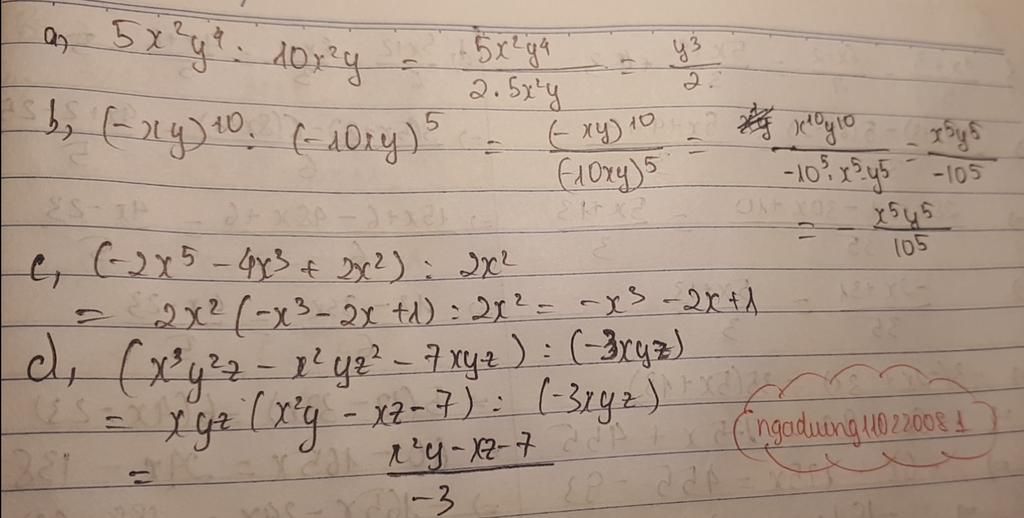 a, 5x²y⁴ : 10x²y = 5x²y⁴ / 2.5x²y = y³ / 2.
b, (-xy)¹⁰ : (-10xy)⁵ = (-xy)¹⁰ / (-10xy)⁵ = x¹⁰y¹⁰ / -10⁵.x⁵.y⁵ = x⁵y⁵ / -10⁵
= - x⁵y⁵ / 10⁵
c, (-2x⁵ - 4x³ + 2x²) : 2x²
= 2x² (-x³ - 2x + 1) : 2x² = -x³ - 2x + 1
d, (x³y²z - x²yz² - 7xyz) : (-3xyz)
= xyz (x²y - xz - 7) : (-3xyz)
= x²y - xz - 7 / -3
ngaduing110220081